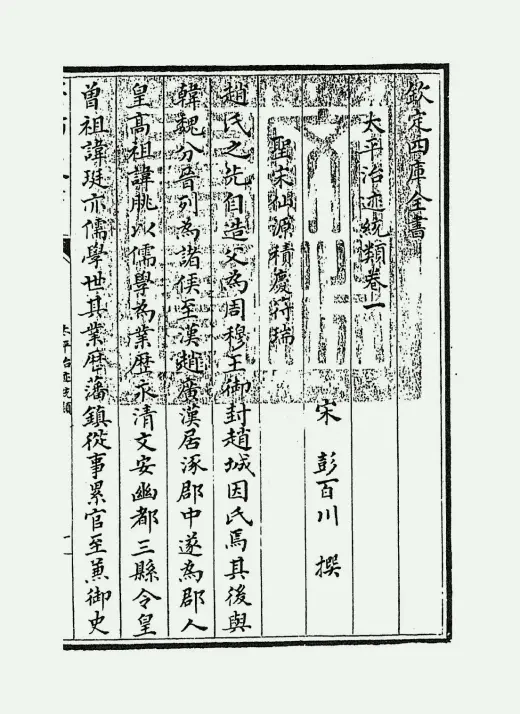 欽定四庫全書
太平治迹統類卷一
宋　彭百川　撰
聖宋仙源積慶符瑞
趙氏之先自造父為周穆王御封趙城因氏焉其後與
韓魏分晉列為諸侯至漢趙廣漢居涿郡中遂為郡人
皇高祖諱朓以儒學為業歴永清文安幽都三縣令皇
曾祖諱珽亦儒學世其業歴藩鎮從事累官至兼御史
太平治迹統類